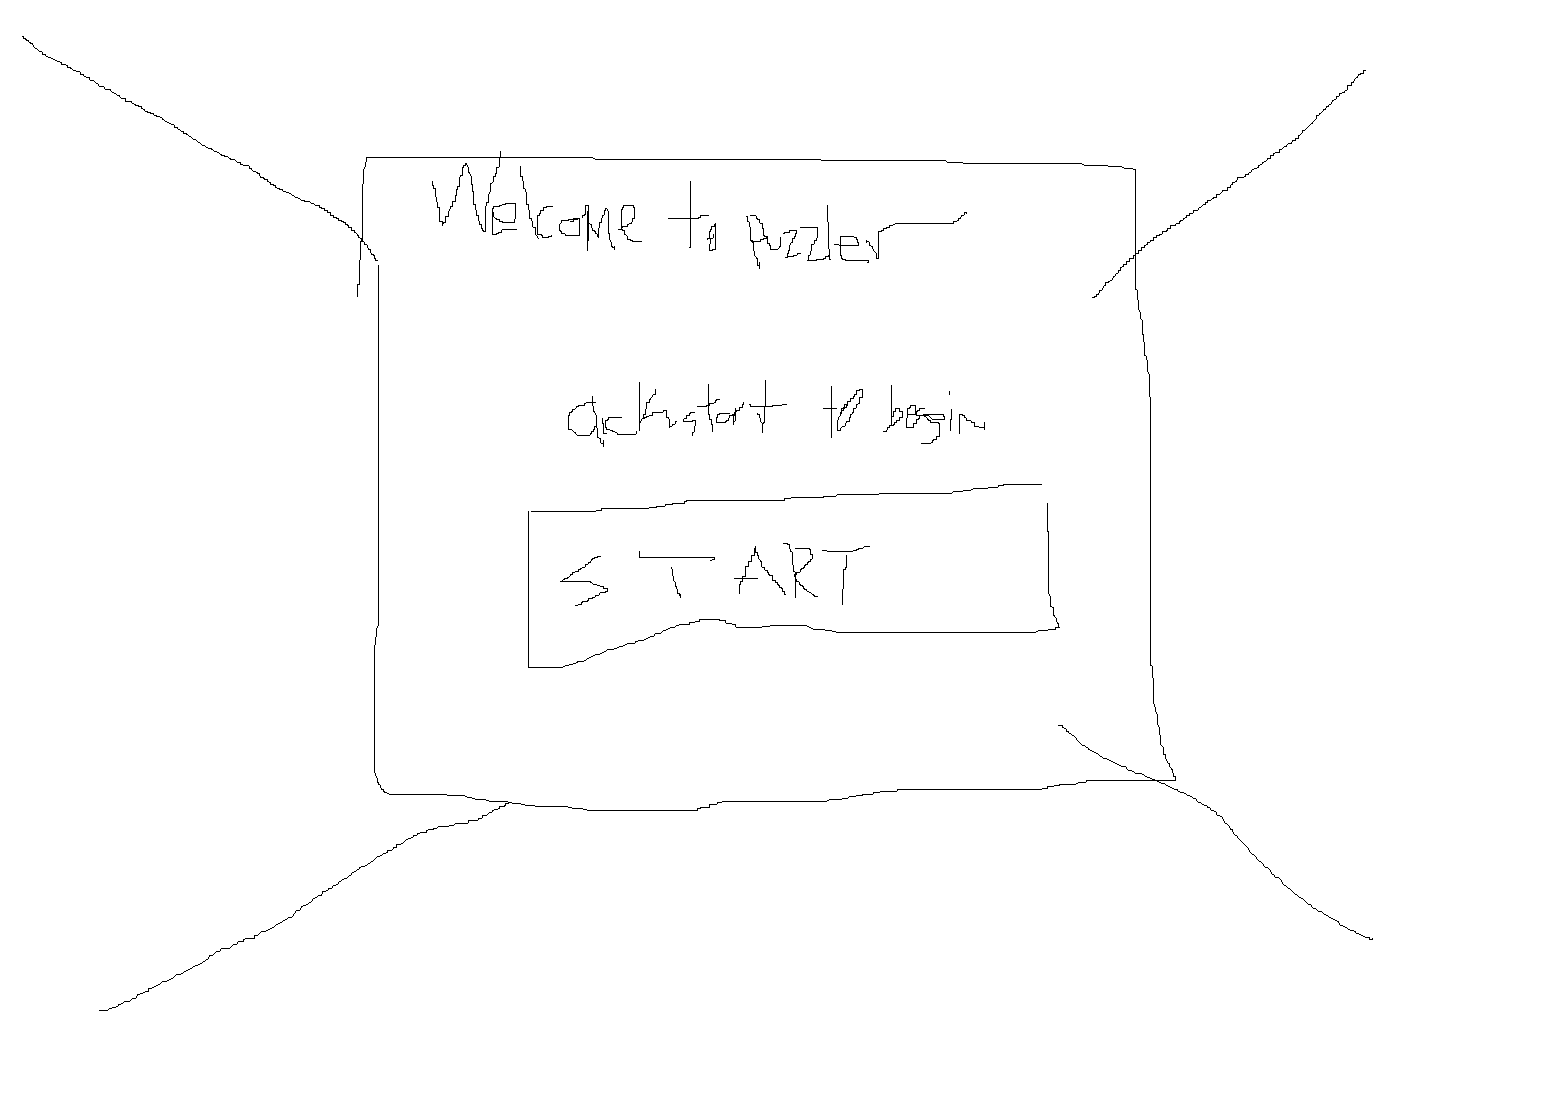 Welcome to puzzler
click start to begin
START